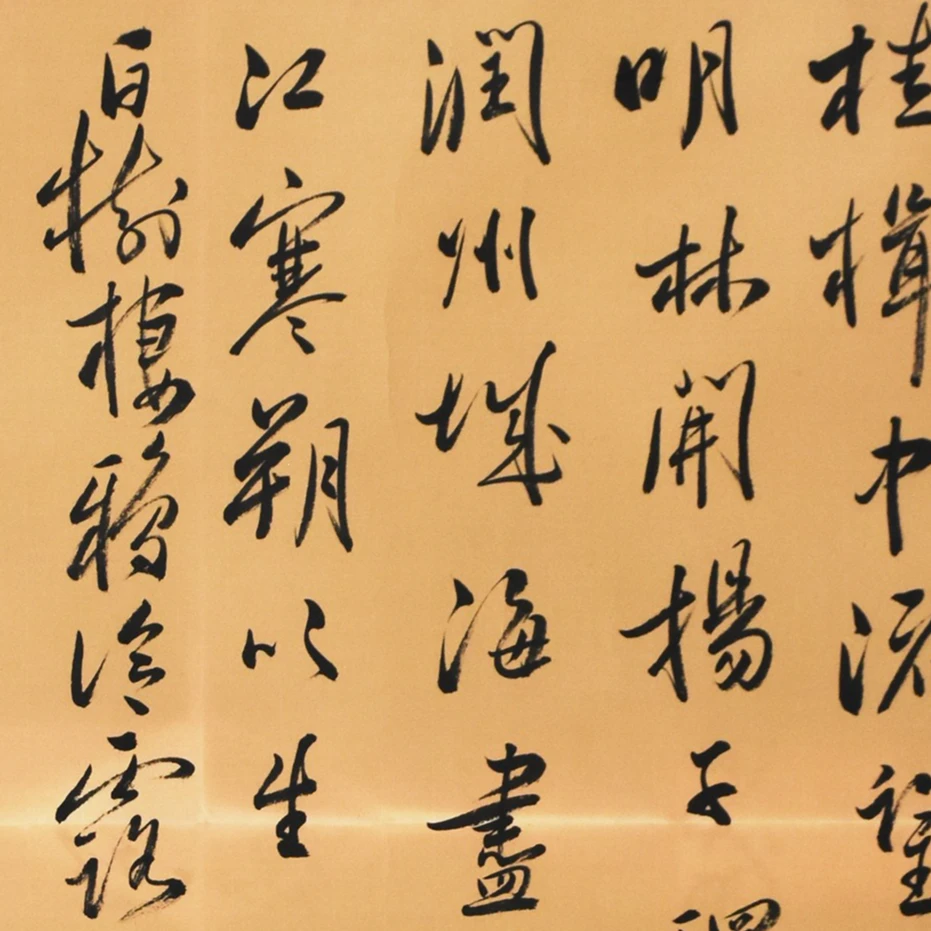 桂楫中流望
明林開揚子
潤州城海盡
江寒朔吹生
白樹棲鴉冷露